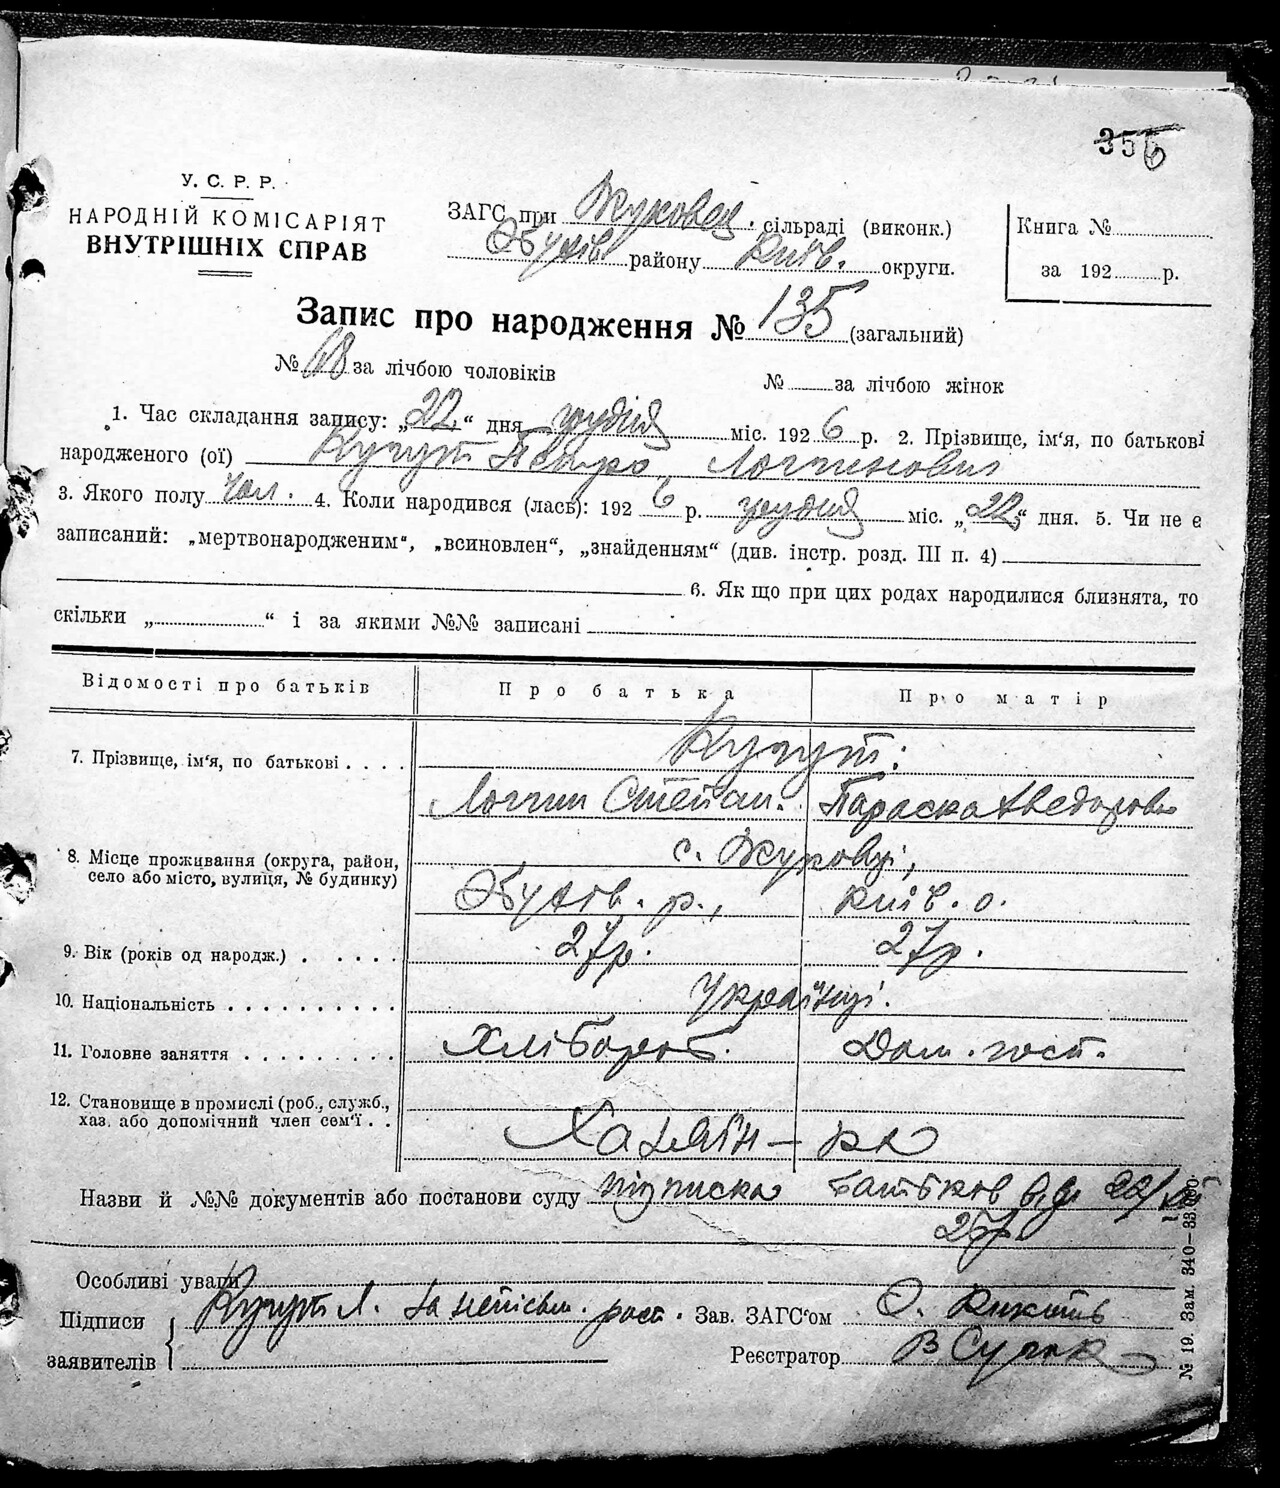 356
У. С. Р. Р.
НАРОДНІЙ КОМІСАРІЯТ
ВНУТРІШНІХ СПРАВ
ЗАГС при Жуковец. сільраді (виконк.)
Обухів району Київ. округи.
Книга №
за 192 р.
Запис про народження № 135 (загальний)
№ 68 за лічбою чоловіків № за лічбою жінок
1. Час складання запису: „22“ дня грудня міс. 1926 р. 2. Прізвище, ім'я, по батькові
народженого (ої) Кугут Петро Логгинович
3. Якого полу чол. 4. Коли народився (лась): 1926 р. грудня міс. „22“ дня. 5. Чи не є
записаний: „мертвонародженим“, „всиновлен“, „знайденням“ (див. інстр. розд. III п. 4)
6. Як що при цих родах народилися близнята, то
скільки „ “ і за якими №№ записані
Відомості про батьків Про батька Про матір
7. Прізвище, ім'я, по батькові . . . . Кугут:
Логгин Степан. Параска Хведоровн
8. Місце проживання (округа, район, село або місто, вулиця, № будинку) с. Жуковці,
Обухів. р., Київ. о.
9. Вік (років од народж.) . . . . . 27р. 27р.
10. Національність . . . . . . . . . . Українці.
11. Головне заняття . . . . . . . . . Хлібороб. Дом. госп.
12. Становище в промислі (роб., служб.,
хаз. або допомічний член сем'ї . . Хазяїн — ка
Назви й №№ документів або постанови суду підписка батьків від 22/XII
26р.
Особливі уваги
Підписи Кугут Л. за непісьм. росп. Зав. ЗАГС'ом
заявителів Реєстратор
№ 19. Зам. 340—33.000